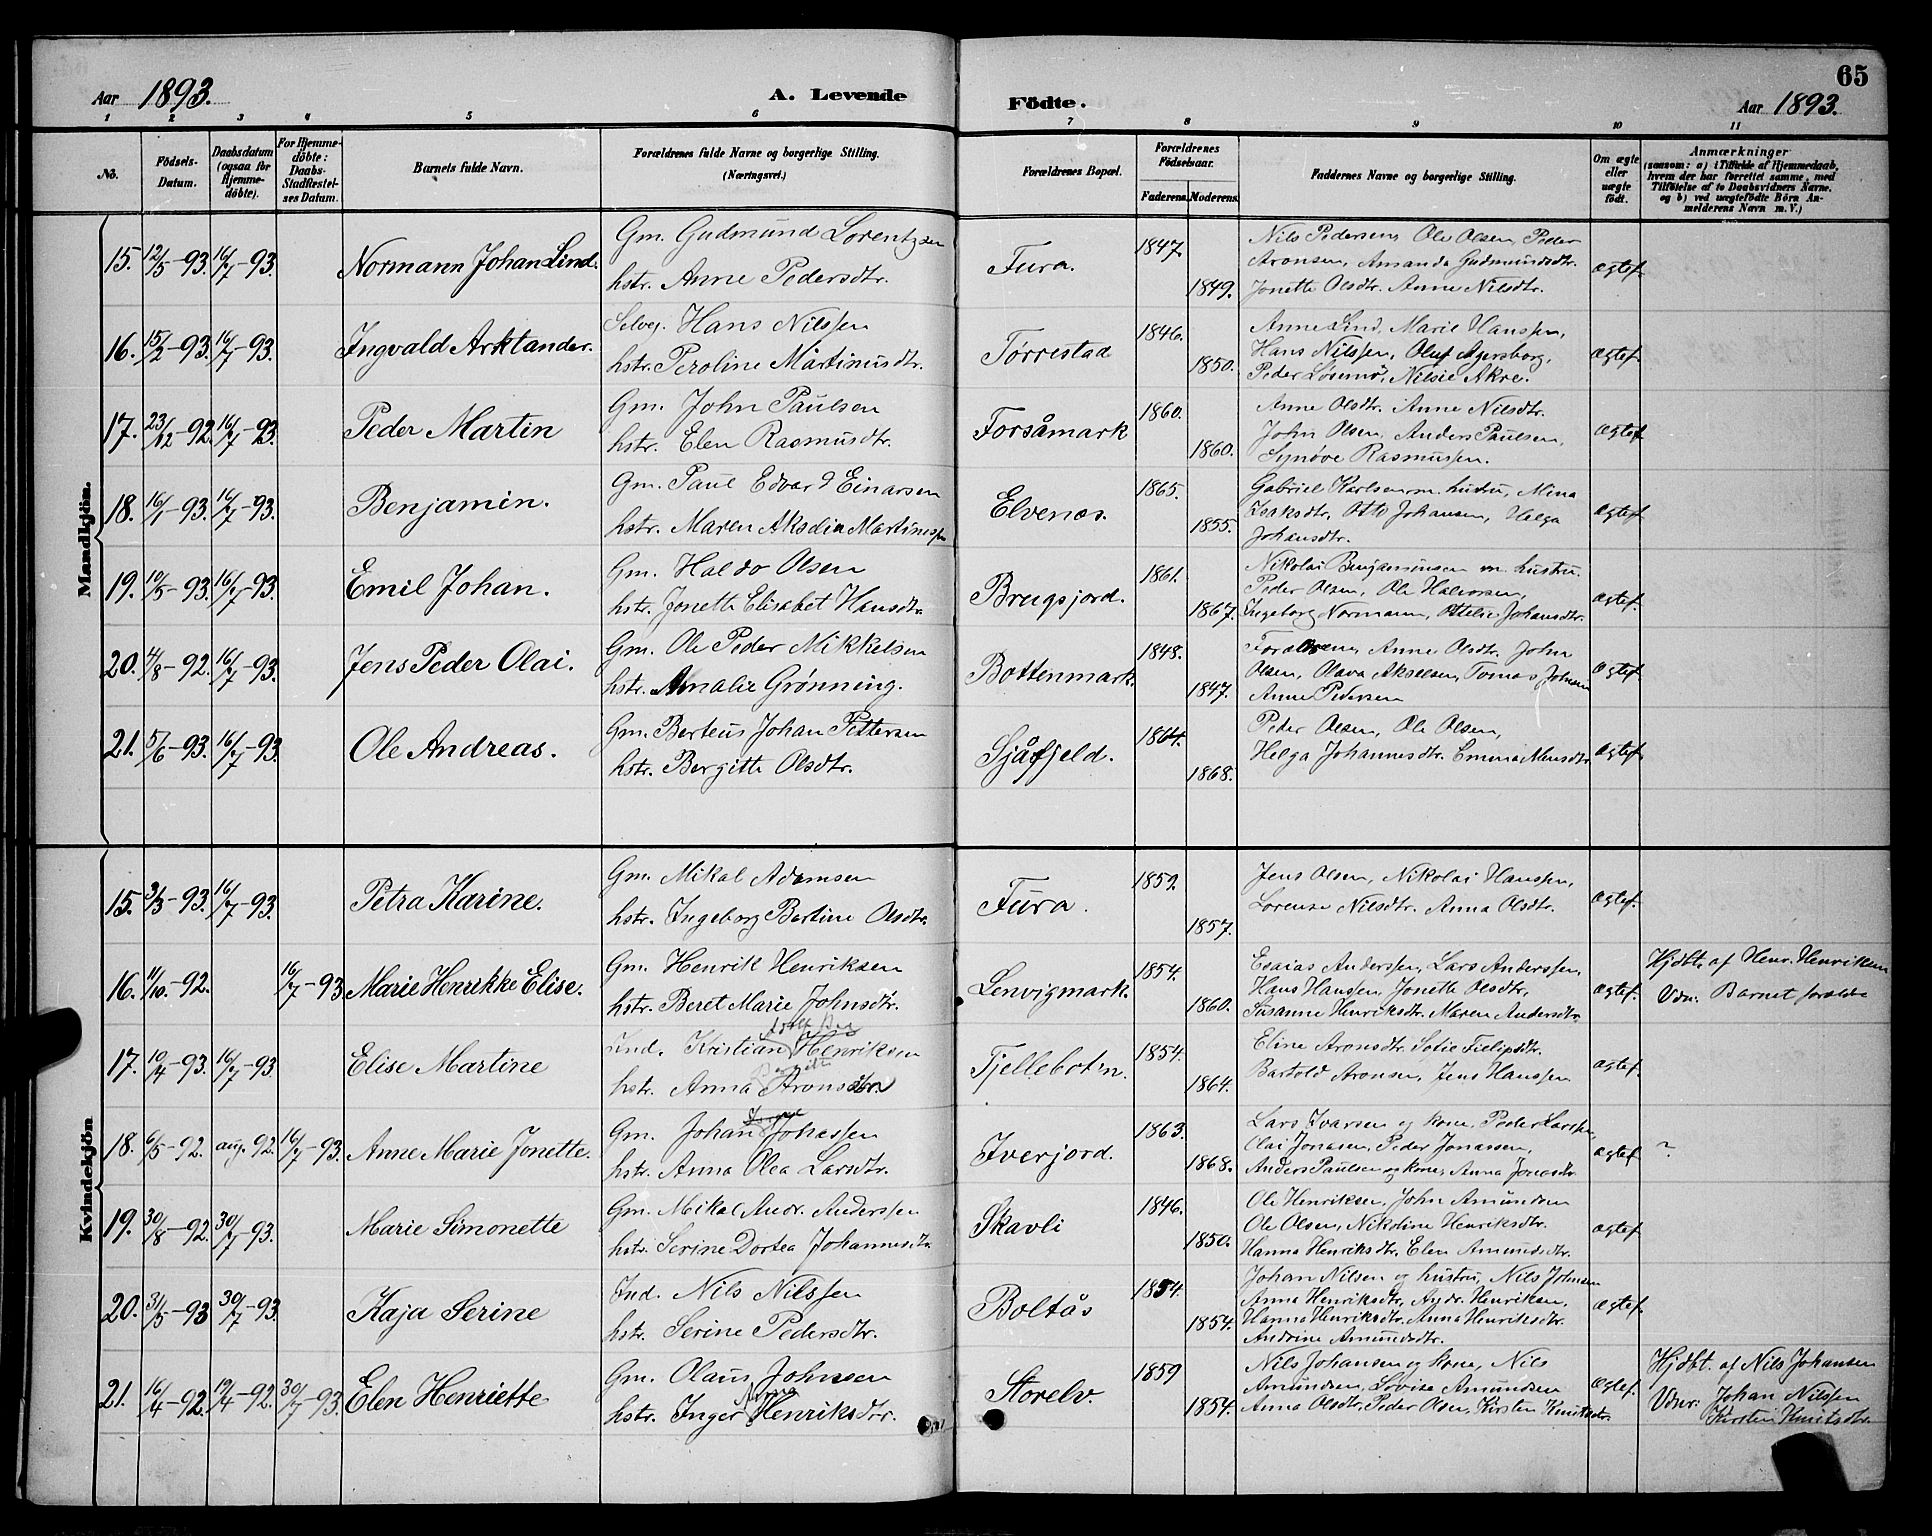 65
Aar 1893. A. Levende Födte. Aar 1893.
1 2 3 4 5 6 7 8 9 10 11
No. Födsels-Datum. Daabsdatum (ogsaa for Hjemme-döbte). For Hjemme-döbte: Daabs-Stadfæstel-ses Datum. Barnets fulde Navn. Forældrenes fulde Navne og borgerlige Stilling. (Næringsvei.) Forældrenes Bopæl. Forældrenes Födselsaar. Faderens. Moderens. Faddernes Navne og borgerlige Stilling. Om ægte eller uægte födt. Anmærkninger (saasom: a) i Tilfælde af Hjemmedaab, hvem der har forrettet samme, med Tilföielse af to Daabsvidners Navne. og b) ved uægtefödte Börn An-melderens Navn m. V.)
Mandkjön.
15. 12/5-93. 16/7-93. Normann Johan Lind. Gm. Gudmund Lorentzsen Fura. 1847. Nils Pedersen, Ole Olsen, Peder
hstr. Anne Pedersdtr. 1849. Aronsen, Amanda Gudmundsdtr. Ægtef.
Jonette Olsdtr. Anne Nilsdtr.
16. 15/2-93. 16/7-93. Ingvald Arktander. Selvej. Hans Nilssen Torrestad 1846. Anne Lind, Marie Hanssen,
hstr. Peroline Martinusdtr. 1850. Hans Nilssen, Oluf Agersborg, Ægtef.
Peder Løsemo, Nilsie Akre.
17. 23/12-92. 16/7-93. Peder Martin Gm. John Paulsen Forsåmark 1860. Anne Olsdtr. Anne Nilsdtr.
hstr. Elen Rasmusdtr. 1860. John Olsen, Anders Paulsen, Ægtef.
Synøve Rasmussen.
18. 16/1-93. 16/7-93. Benjamin. Gm. Paul Edvard Einarsen Elvenes. 1865. Gabriel Karlsen m. hustru, Mina
hstr. Maren Aksdia Martinussen 1855. Isaksdtr, Otto Johansen, Helga Ægtef.
Johansdtr.
19. 10/5-93. 16/7-93. Emil Johan. Gm. Haldo Olsen Brugsjord. 1861. Nikolai Benjaminsen m. hustru.
hstr. Jonette Elisabet Hansdtr. 1867. Peder Olsen, Ole Halvorsen, Ægtef.
Ingeborg Normann, Ottelie Johansdtr.
20. 4/8-92. 16/7-93. Jens Peder Olai. Gm. Ole Peder Mikkelsen Bottenmark. 1848. Anne Olsdtr. John
hstr. Amalie Grønning. 1847. Olsen, Olava Akselsen, Tomas Johnsen Ægtef.
Anne Pedersen
21. 5/6-93. 16/7-93. Ole Andreas. Gm. Berteus Johan Pettersen Sjåfjeld. 1864. Peder Olsen, Ole Olsen,
hstr. Bergitte Olsdtr. 1868. Helga Johannesdtr. Emma Monsdtr. Ægtef.
Kvindekjön
15. 3/3-93. 16/7-93. Petra Karine. Gm. Mikal Adamsen Fura. 1859. Jens Olsen, Nikolai Hanssen,
hstr. Ingeborg Bertine Olsdtr. 1857. Lorense Nilsdtr. Anna Olsdtr. Ægtef.
16. 11/10-92. 16/7-93 Marie Henrikke Elise. Gm. Henrik Henriksen Lenvigmark. 1854. Esaias Anderssen, Lars Anderssen, Hjdbt. af Henr. Henriksen
hstr. Beret Marie Johnsdtr. 1860. Hans Hansen, Jonette Olsdtr, Ægtef. Vdn: Barnet forældre
Susanne Henriksdtr. Maren Andersdtr.
17. 10/4-93. 16/7-93 Elise Martine Ind. Kristian Henriksen Fjellebotn. 1854. Eline Aronsdtr. Sofie Fielipsdtr.
hstr. Anna Aronsdtr. 1864. Bartold Aronsen, Jens Hanssen Ægtef.
18. 6/5-92. aug. 92. 16/7-93. Anne Marie Jonette. Gm. Johan Johassen Iverjord. 1863. Lars Ivarsen og kone, Peder Larssen,
hstr. Anna Olea Larsdtr. 1868. Olai Jonasen, Peder Jonassen, Ægtef. ?
Anders Paulsen og kone, Anna Jonasdtr.
19. 30/8-92. 30/7-93. Marie Simonette Gm. Mikal Andr. Anderssen Skavli 1846. Ole Henriksen, John Amundsen
hstr. Serine Dortea Johannesdtr. 1850. Ole Olsen, Nikoline Henriksdtr. Ægtef.
Hanna Henriksdtr, Elen Amundsdtr.
20. 31/5-93 30/7-93. Kaja Serine Ind. Nils Nilssen Boltås 1854. Johan Nilsen og hustru, Nils Johnsen
hstr. Serine Pedersdtr. 1854. Anna Henriksdtr, Andr. Henriksen, Ægtef.
Hanna Henriksdtr. Anna Henriksdtr.
Andrine Amundsdtr.
21. 16/4-92. 19/4-92. 30/7-93. Elen Henriette Gm. Olaus Johnsen Storelv. 1859 Nils Johansen og kone, Nils Hjdbt. af Nils Johansen
hstr. Inger Anna Henriksdtr. 1854. Amundsen, Lovise Amundsen Ægtef. Vdnr: Johan Nilssen
Anna Olsdtr, Peder Olsen, Kirsten Knutsdtr. Kirsten Knutsdtr.